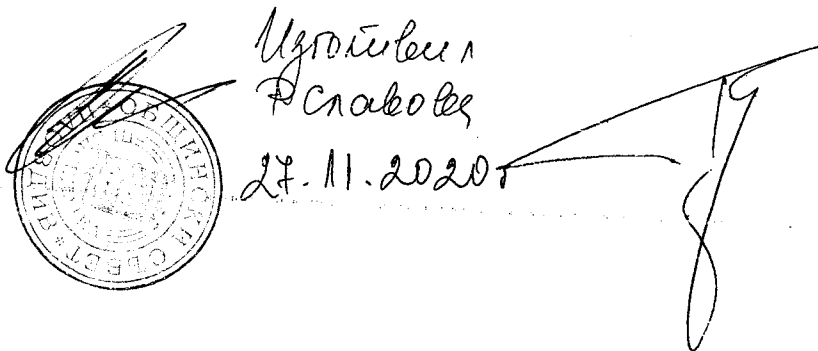 Изготвил
Р Славова
27.11.2020г
ОБЩИНСКИ СЪВЕТ * ВИДИН